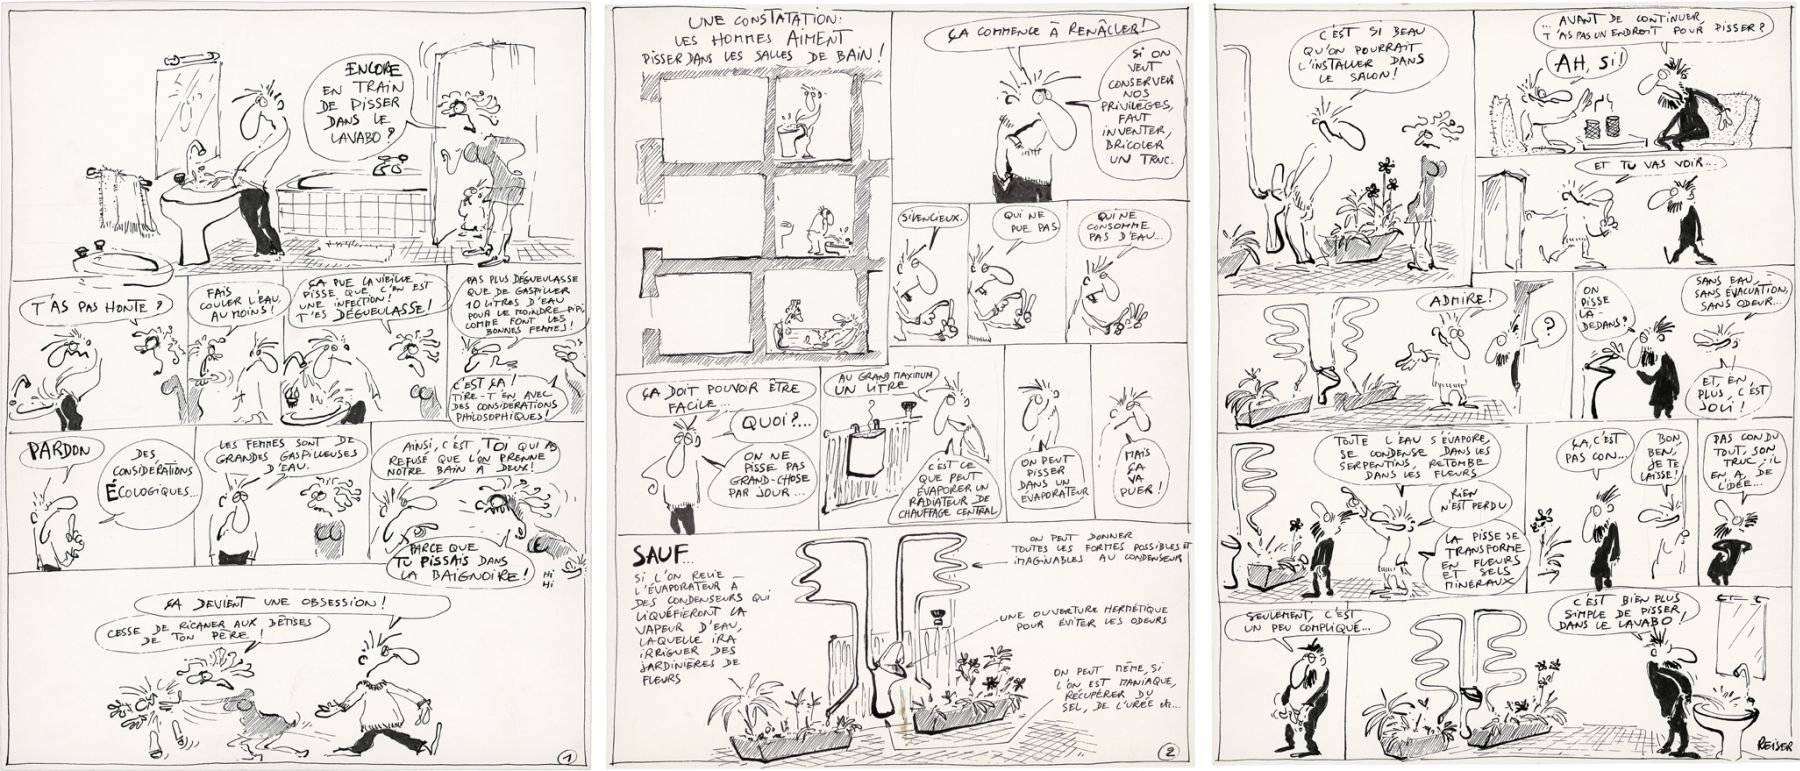 ENCORE
EN TRAIN
DE PISSER
DANS LE
LAVABO ?
T'AS PAS HONTE ?
FAIS
COULER L'EAU,
AU MOINS !
ÇA PUE LA VIEILLE
PISSE QUE C'EN EST
UNE INFECTION !
T'ES DÉGUEULASSE !
PAS PLUS DÉGUEULASSE
QUE DE GASPILLER
10 LITRES D'EAU
POUR LE MOINDRE PIPI,
COMME FONT LES
BONNES FEMMES !
C'EST ÇA !
TIRE-T'EN AVEC
DES CONSIDÉRATIONS
PHILOSOPHIQUES !
PARDON
DES
CONSIDÉRATIONS
ÉCOLOGIQUES...
LES FEMMES SONT DE
GRANDES GASPILLEUSES
D'EAU.
AINSI, C'EST TOI QUI AS
REFUSÉ QUE L'ON PRENNE
NOTRE BAIN A DEUX !
PARCE QUE
TU PISSAIS DANS
LA BAIGNOIRE !
HI
HI
ÇA DEVIENT UNE OBSESSION !
CESSE DE RICANER AUX BÊTISES
DE TON PÈRE !
1
UNE CONSTATATION:
LES HOMMES AIMENT
PISSER DANS LES SALLES DE BAIN !
ÇA COMMENCE À RENÂCLER !
SI ON
VEUT
CONSERVER
NOS
PRIVILÈGES,
FAUT
INVENTER,
BRICOLER
UN TRUC.
SILENCIEUX.
QUI NE
PUE PAS
QUI NE
CONSOMME
PAS D'EAU...
ÇA DOIT POUVOIR ÊTRE
FACILE...
QUOI ?...
ON NE
PISSE PAS
GRAND-CHOSE
PAR JOUR...
AU GRAND MAXIMUM
UN LITRE
C'EST CE
QUE PEUT
ÉVAPORER UN
RADIATEUR DE
CHAUFFAGE CENTRAL
ON PEUT
PISSER
DANS UN
ÉVAPORATEUR
MAIS
ÇA
VA
PUER !
SAUF...
SI L'ON RELIE
L'ÉVAPORATEUR A
DES CONDENSEURS QUI
LIQUÉFIERONT LA
VAPEUR D'EAU,
LAQUELLE IRA
IRRIGUER DES
JARDINIÈRES DE
FLEURS
ON PEUT DONNER
TOUTES LES FORMES POSSIBLES ET
IMAGINABLES AU CONDENSEUR
UNE OUVERTURE HERMÉTIQUE
POUR ÉVITER LES ODEURS
ON PEUT MÊME, SI
L'ON EST MANIAQUE,
RÉCUPÉRER DU
SEL, DE L'URÉE etc...
2
C'EST SI BEAU
QU'ON POURRAIT
L'INSTALLER DANS
LE SALON !
... AVANT DE CONTINUER,
T'AS PAS UN ENDROIT POUR PISSER ?
AH, SI !
ET TU VAS VOIR...
ADMIRE !
?
ON
PISSE
LA-
DEDANS ?
SANS EAU,
SANS ÉVACUATION,
SANS ODEUR...
ET, EN
PLUS, C'EST
JOLI !
TOUTE L'EAU S'ÉVAPORE,
SE CONDENSE DANS LES
SERPENTINS, RETOMBE
DANS LES FLEURS
RIEN
N'EST PERDU
LA PISSE SE
TRANSFORME
EN FLEURS
ET SELS
MINÉRAUX
ÇA, C'EST
PAS CON...
BON
BEN,
JE TE
LAISSE !
PAS CON DU
TOUT, SON
TRUC, IL
EN A, DE
L'IDÉE...
SEULEMENT, C'EST
UN PEU COMPLIQUÉ...
C'EST BIEN PLUS
SIMPLE DE PISSER
DANS LE LAVABO !
REISER